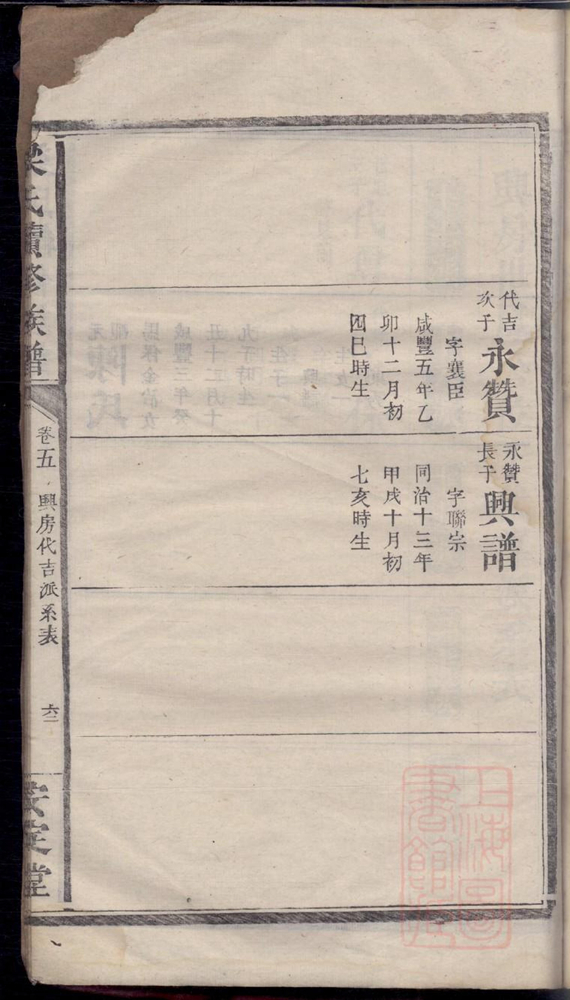 代吉
次子
永贊
字襄臣
咸豐五年乙
卯十二月初
四巳時生
永贊
長子
興譜
字聯宗
同治十三年
甲戌十月初
七亥時生
梁氏續修族譜
卷五
興房代吉派系表
六二
安定堂
上海圖
書館藏